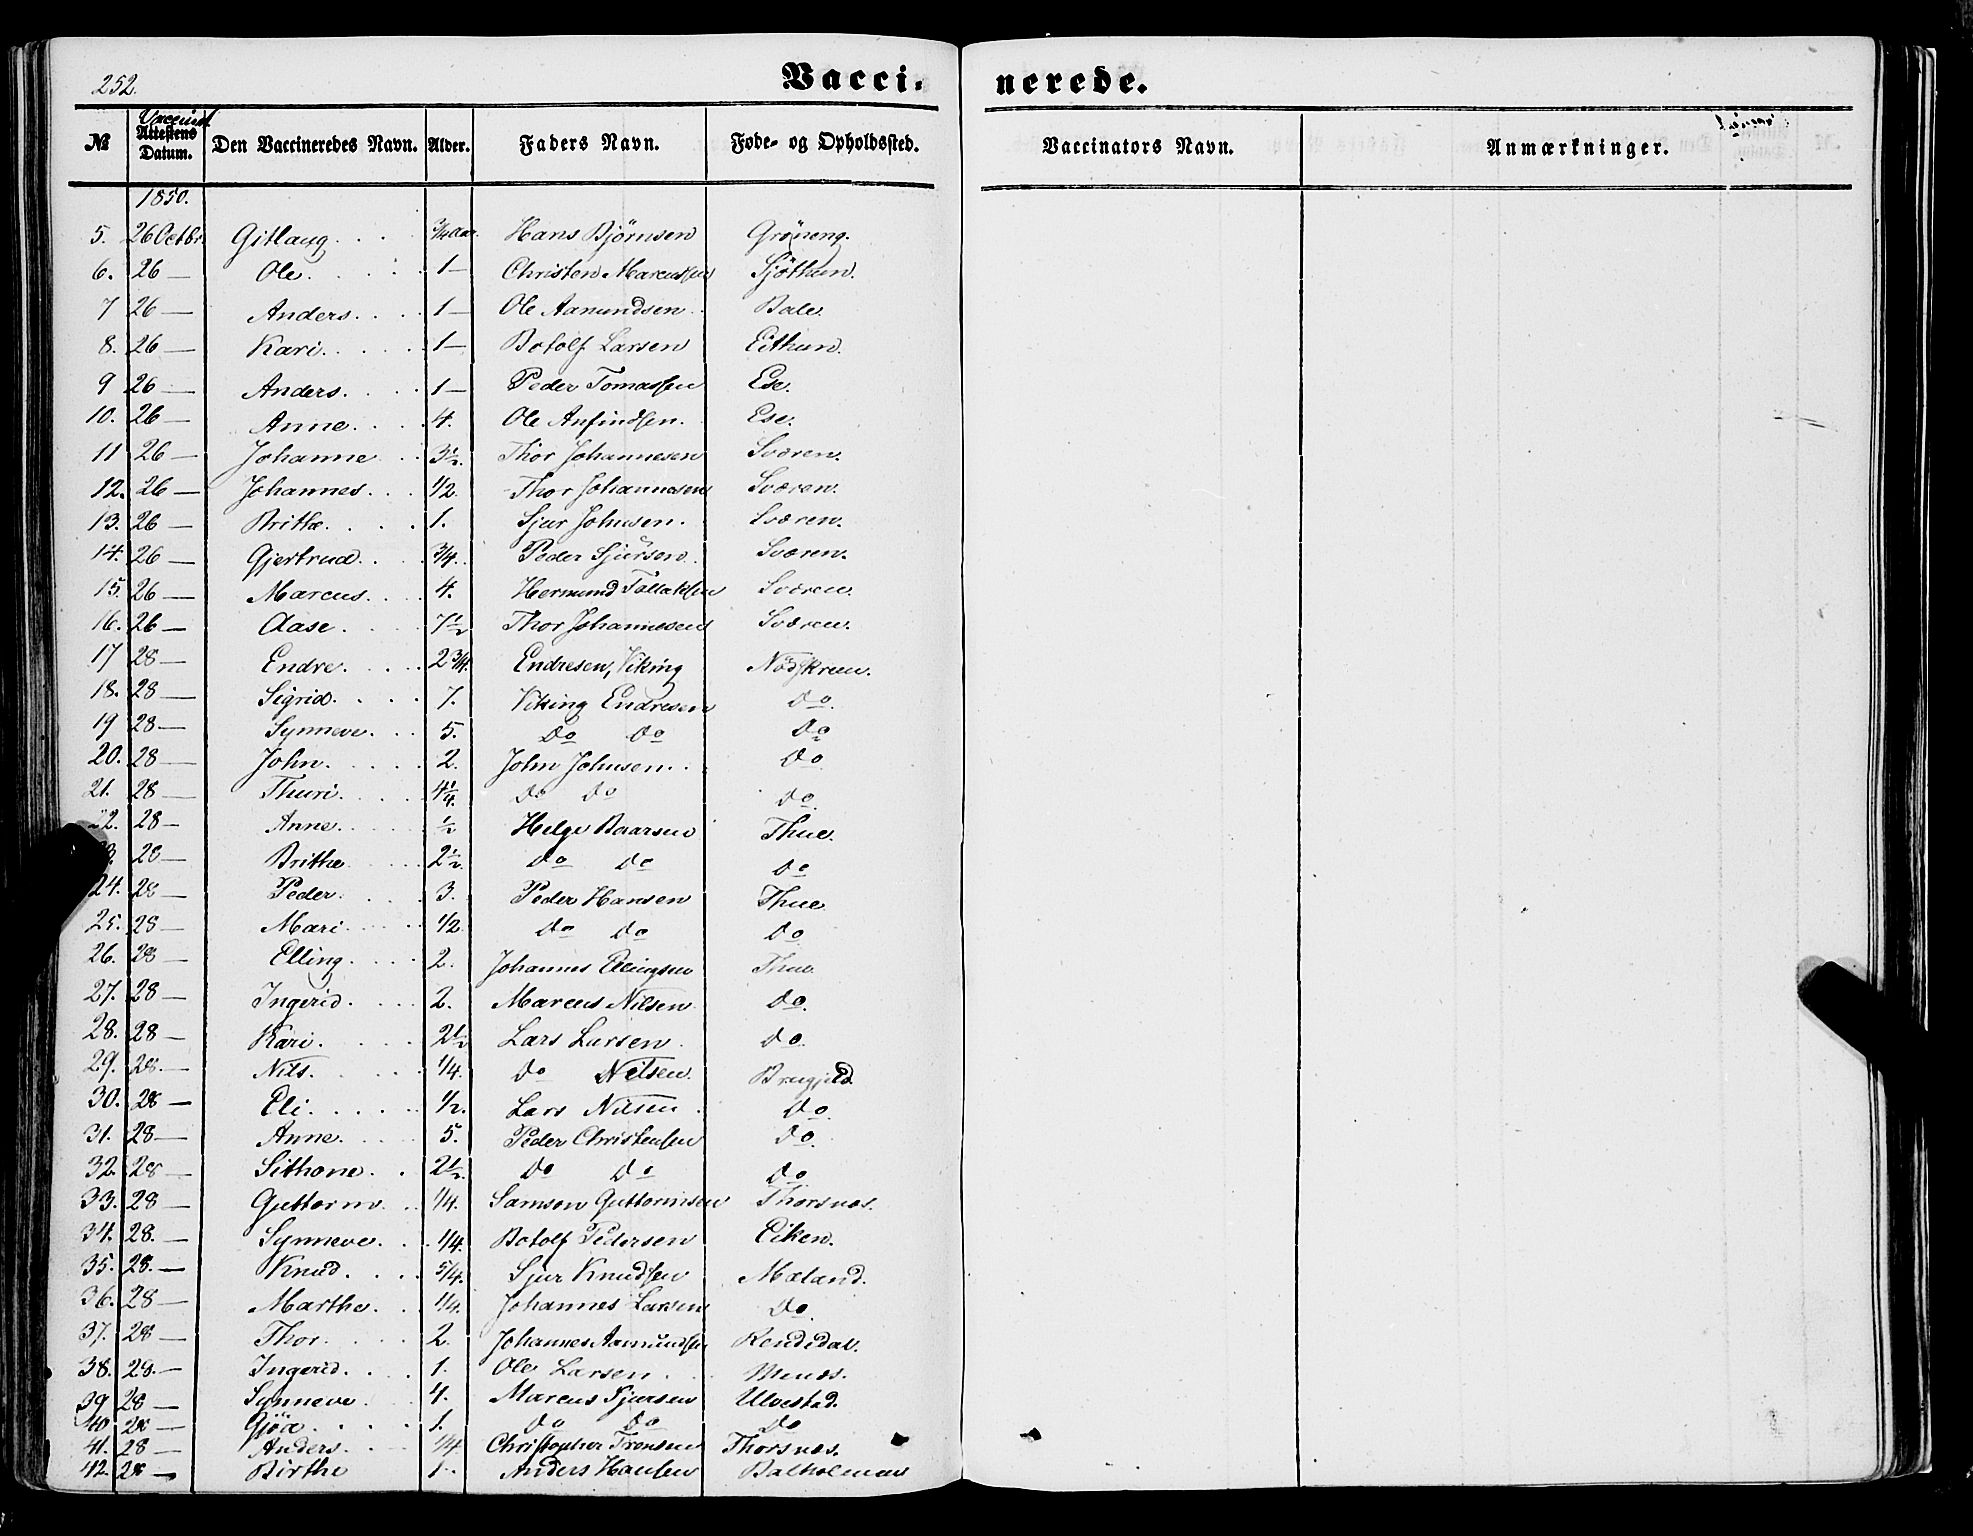 252.
Vacci-
nerede.
№ Vaccinat. Attestens Datum. Den Vaccineredes Navn. Alder. Faders Navn. Føde- og Opholdssted.
Vaccinators Navn. Anmærkninger.
1850.
5. 26 Octbr. Gitlaug. 3/4 aar. Hans Bjørnsen Gröneng.
6. 26 — Ole. 1 — Christen Marcussen Sjöthun.
7 26 — Anders. 1 — Ole Aamundsen Bale.
8. 26 — Kari. 1 — Botolf Larsen Eithun.
9 26 — Anders. 1 — Peder Tomassen Ese.
10. 26 — Anne. 4. Ole Anfindsen. Ese.
11 26 — Johanne 3 1/2. Thor Johannesen Sværen.
12. 26 — Johannes. 1/2. Thor Johannesen Sværen.
13. 26 — Brithe. 1. Sjur Johnsen. Sværen.
14. 26 — Gjertrud. 3/4. Peder Sjursen. Sværen.
15. 26 — Marcus. 4. Hermund Tollaksen Sværen.
16. 26 — Aase. 7 1/2 Thor Johannesen Sværen.
17 28 — Endre. 2 3/4. Endresen, Viking Nödskreen.
18. 28 — Sigrid. 7. Viking Endresen do.
19 28 — Synneve. 5. do do do
20. 28 — John. 2. John Johnsen. do
21. 28 — Thuri. 4 1/4. do do do.
22. 28 — Anne. 1/2 Helge Baarsen Thue.
28 — Brithe 2 1/2. do do do
24. 28 — Peder. 3. Peder Hansen Thue
25. 28 — Mari. 1/2 do do do
26. 28 — Elling. 2. Johannes Ellingsen Thue
27. 28 — Ingerid. 2. Marcus Nilsen do.
28. 28 — Kari. 2 1/2 Lars Larsen. do.
29. 28. — Nils. 1/4. do Nilsen.
30. 28 — Eli. 1/2. Lars Nilsen do.
31. 28 — Anne. 5. Peder Christensen do.
32. 28 — Sithone. 2 1/2. do do do
33. 28 — Guttorm. 1/4. Samson Guttormsen Thorsnes.
34. 28. — Synneve. 1/4. Botolf Pedersen Eiken.
35. 28. — Knud. 5/4. Sjur Knudsen Mæland.
36. 28 — Marthe. 1/4. Johannes Larsen do.
37. 28 — Thor. 2. Johannes Aamundsen Rendedal.
38. 28. — Ingerid. 1. Ole Larsen. Menes.
39 28 — Synneve 4. Marcus Sjursen Ulvestad.
40 28 — Gjöa 1. do do do
41. 28 — Anders. 1/4 Christopher Tronsen Thorsnes.
42. 28 — Birthe 1. Anders Hansen Balholmen